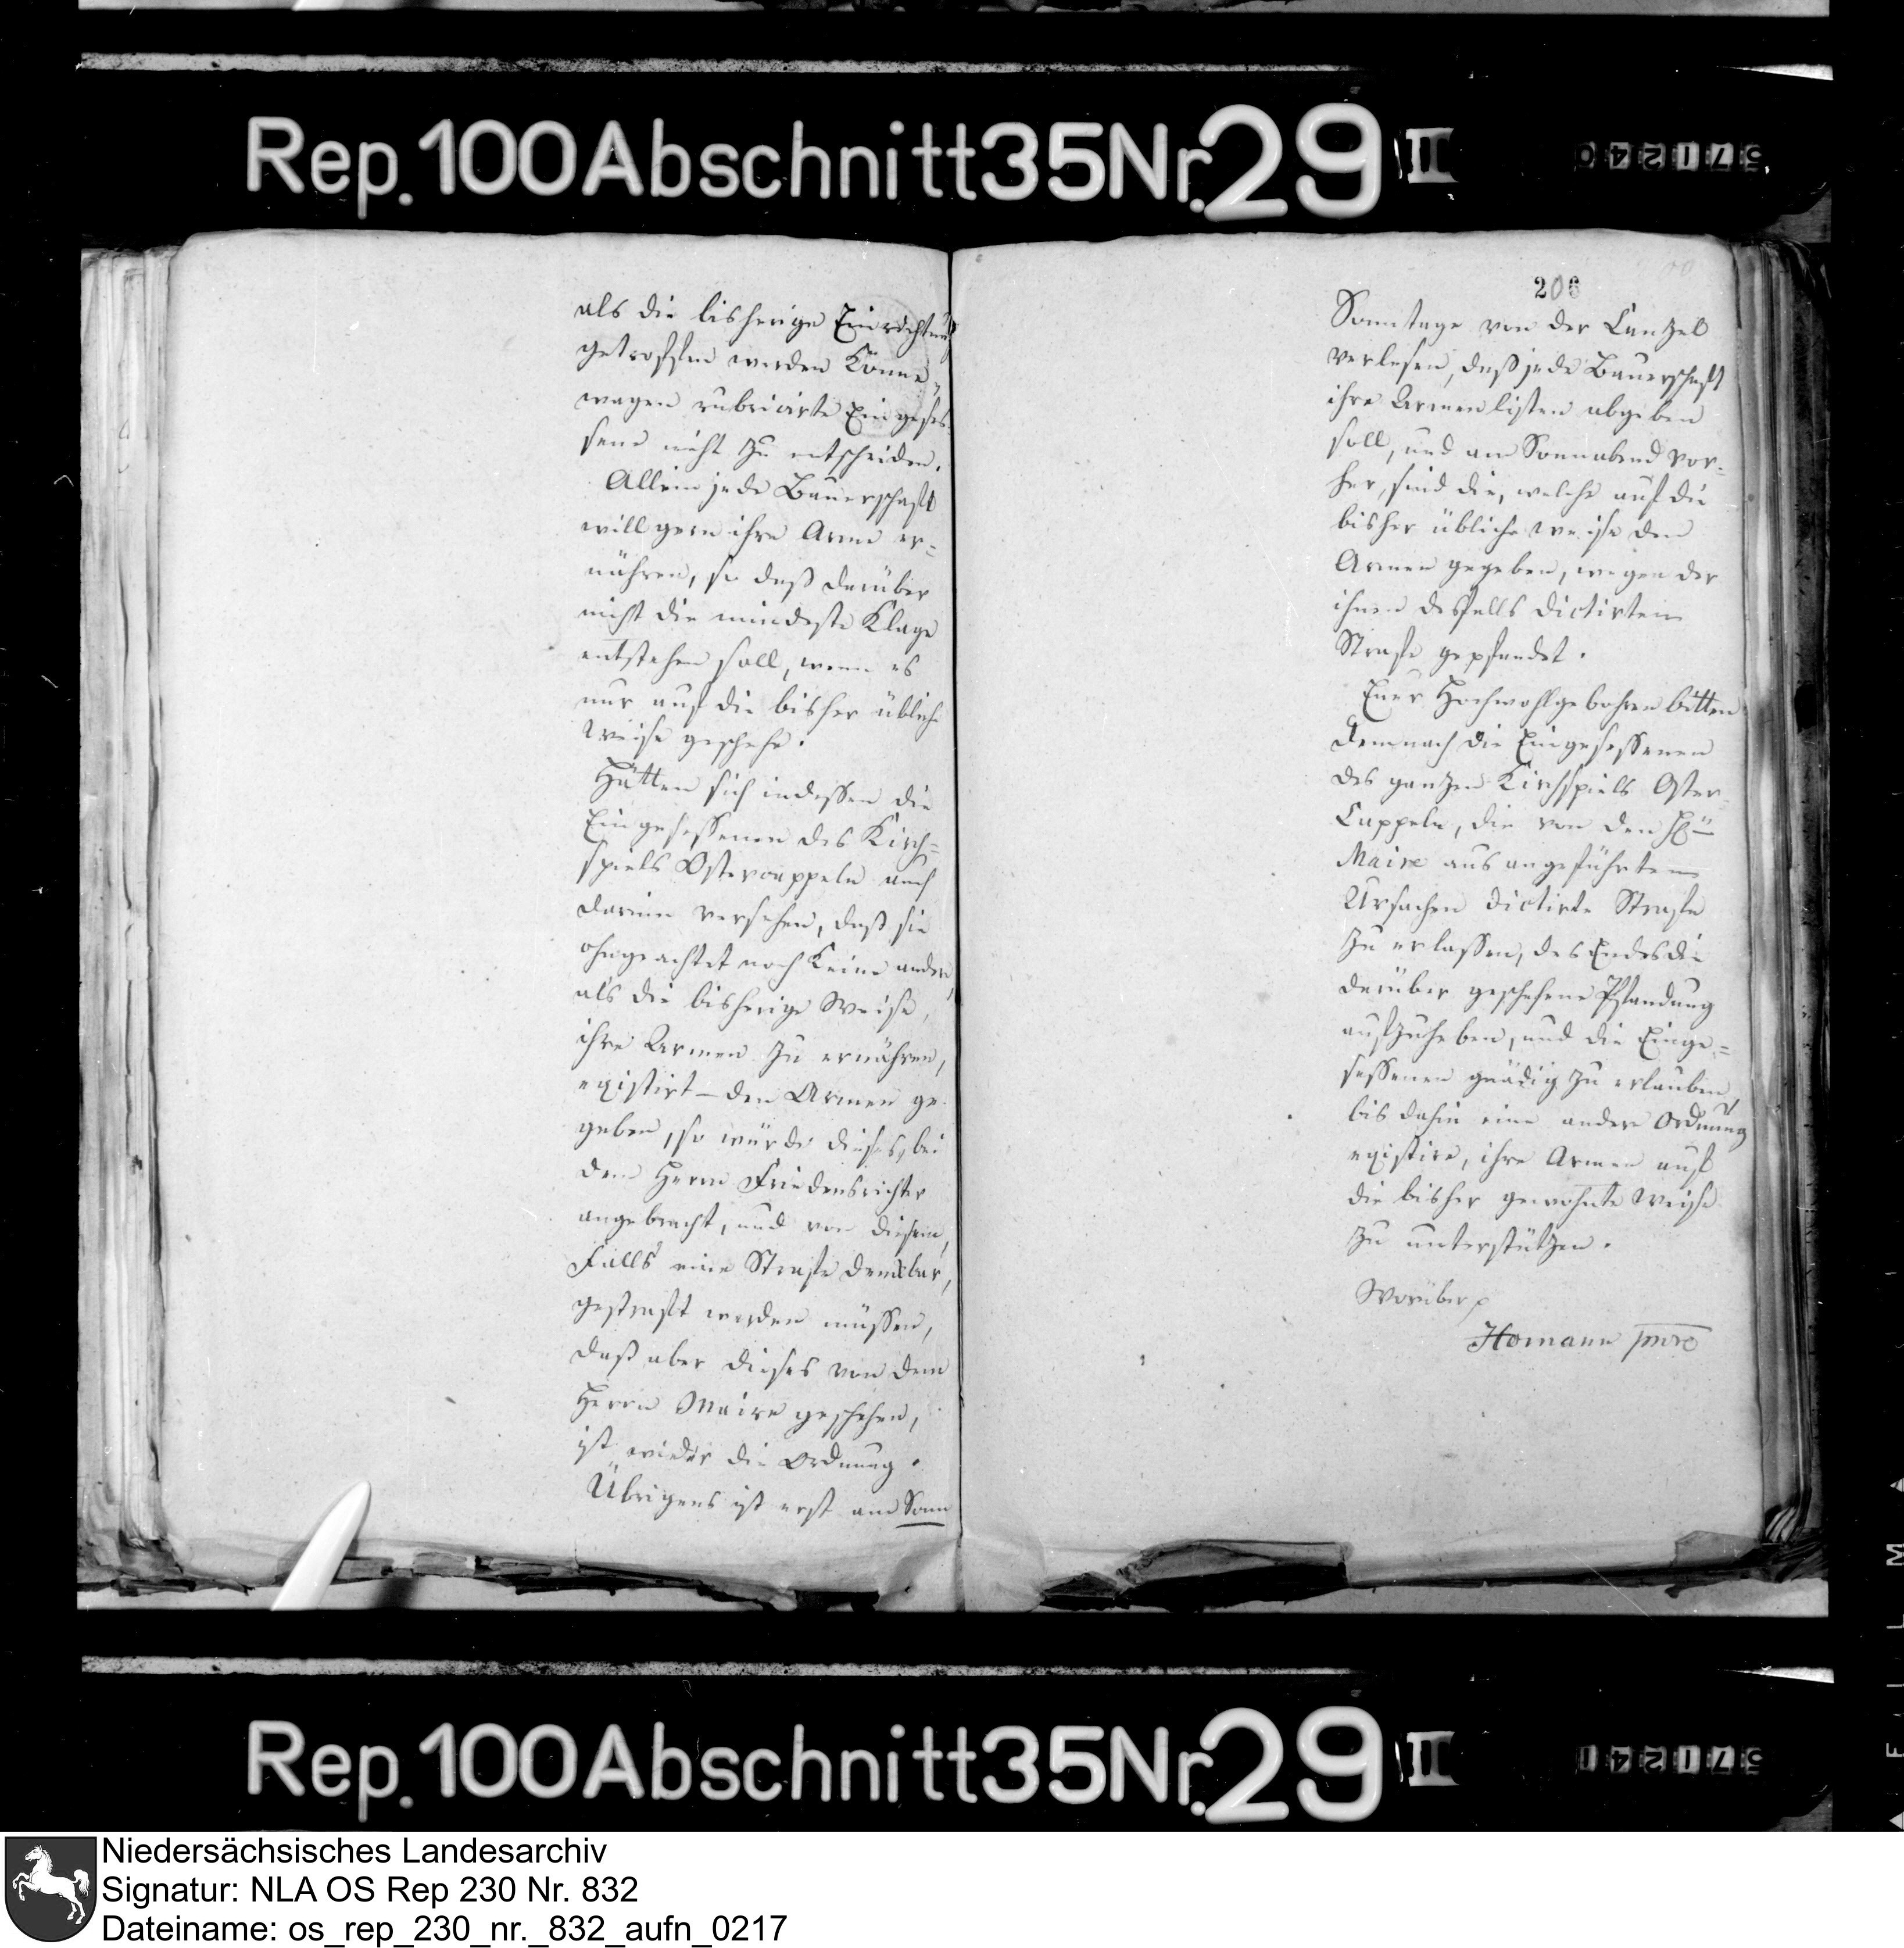 Rep. 100 Abschnitt 35 Nr. 29 II
571240
als die bisherige Einrichtung
getroffen werden könne,
wagen rubricirte Eingeses-
sene nicht zu entscheiden.
Allein jede Bauerschaft
will gern ihre Arme er=
nähren, so daß darüber
nicht die mindeste Klage
entstehen soll, wenn es
nur auf die bisher übliche
Weise geschehe.
Hätten sich indessen die
Eingesessenen des Kirch=
spiels Ostercappeln auch
darinn versehen, daß sie
ohngeachtet noch keine andere,
als die bisherige Weise,
ihre Armen zu ernähren,
existirt – den Armen ge-
geben, so würde dieses, bei
dem Herrn Friedensrichter
angebracht, und von diesem,
Falls eine Strafe denkbar,
gestraft werden müssen,
daß aber dieses von dem
Herrn Maire geschehen,
ist wieder die Ordnung.
Übrigens ist erst am Sonn
206
Sonntage von der Canzel
verlesen, daß jede Bauerschaft
ihre Armenlisten abgeben
soll, und am Sonnabend vor-
her, sind die, welche auf die
bisher übliche Weise den
Armen gegeben, wegen der
ihnen desfalls dictirten
Strafe gepfandet.
Euer Hochwohlgebohren bitten
demnach die Eingesessenen
des ganzen Kirchspiels Oster-
Cappeln, die von den
Maire aus angeführten
Ursachen dictirte Strafe
zu erlassen, des Endes die
darüber geschehene Pfandung
aufzuheben, und die Einge=
sessenen gnädig zu erlauben,
bis dahin eine andere Ordnung
existire, ihre Armen auf
die bisher gewohnte Weise
zu unterstützen.
Worüber
Homann
Rep. 100 Abschnitt 35 Nr. 29 II
571241
FILM
Niedersächsisches Landesarchiv
Signatur: NLA OS Rep 230 Nr. 832
Dateiname: os_rep_230_nr._832_aufn_0217